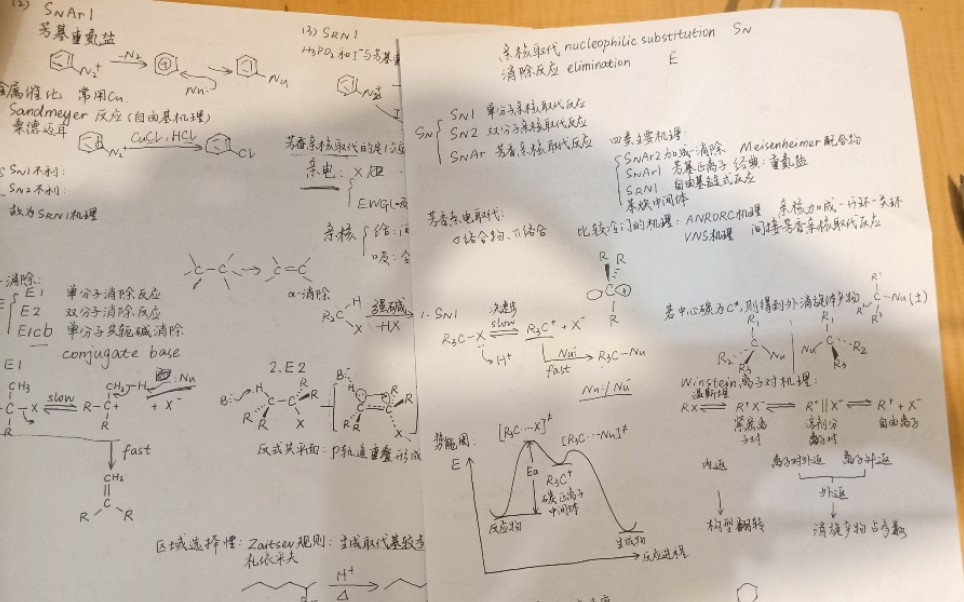 (2) SNAr1
芳基重氮盐
-N2
N2+
Nu:
Nu
金属催化 常用Cu.
Sandmeyer 反应(自由基机理)
桑德迈耳
N2+
CuCl, HCl
Cl
SN1不利:
SN2不利:
故为SRN1机理
消除:
E1 单分子消除反应
E2 双分子消除反应
E1cb 单分子共轭碱消除
conjugate base
E1
CH3
C-X
slow
R-C+
CH2-H
:Nu
+ X-
R
R
fast
CH2
C
R R
(3) SRN1
H3PO2和I-与芳基
N2+
芳香亲核取代的定位效应
亲电:
EWG
亲核
给:
吸:
-C-C- → C=C
α-消除
H
C
X
强碱
-HX
2. E2
B:
H
R
R
C-C
X
反式共平面: p轨道重叠形成
区域选择性: Zaitsev规则: 生成取代基较多
札依采夫
H+
△
亲核取代 nucleophilic substitution SN
消除反应 elimination E
SN
SN1 单分子亲核取代反应
SN2 双分子亲核取代反应
SNAr 芳香亲核取代反应
四类主要机理:
SNAr2 加成-消除 Meisenheimer 配合物
SNAr1 芳基正离子 经典: 重氮盐
SRN1 自由基链式反应
苯炔中间体
芳香亲电取代:
σ络合物、π络合
比较冷门的机理: ANRORC机理 亲核加成-开环-关环
VNS机理 间接芳香亲核取代反应
R R
C +
R
1. SN1
决速步
R3C-X slow R3C+ + X-
H+
Nu:
fast
R3C-Nu
Nu:/Nu-
若中心碳为C*,则得到外消旋体产物
R1
R2
R3
C-Nu (±)
R1
R2
C
R3
Nu
R1
Nu
C
R2
R3
Winstein 离子对机理:
温斯坦
RX ⇌ R+X- ⇌ R+||X- ⇌ R+ + X-
紧密离子对
溶剂分离子对
自由离子
内返
离子对外返 离子外返
外返
构型翻转
消旋产物占多数
势能图:
E
[R3C---X]‡
[R3C---Nu]‡
Ea
R3C+
碳正离子
中间体
反应物
生成物
反应进程